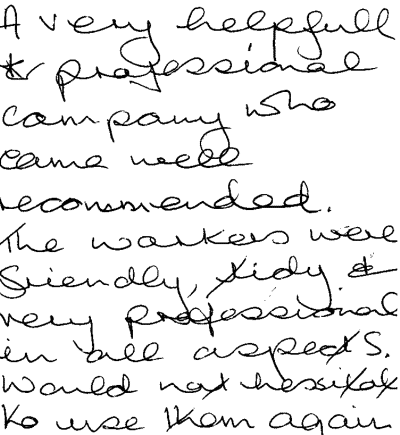 A very helpfull
& professional
company who
came well
recommended.
The workers were
friendly, tidy &
very professional
in all aspects.
Would not hessitat
to use them again